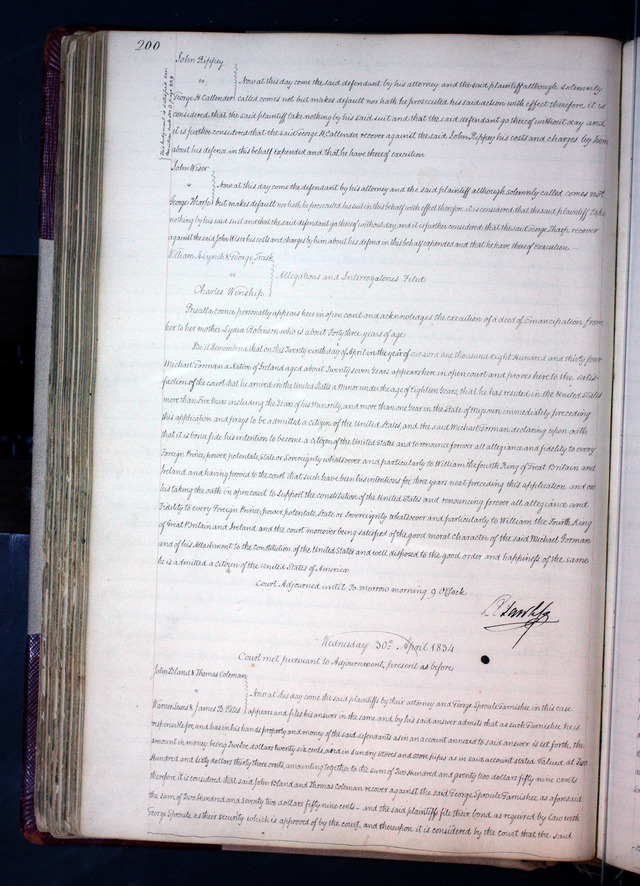 200
John Rippey
vs
Now at this day come the said defendant by his attorney and the said plaintiff although solemnly
George H. Callender called comes not but makes default nor hath he prosecuted his said action with effect therefore it is
considered that the said plaintiff take nothing by his said suit and that the said defendant go thereof without day and
it is further considered that the said George H. Callender recover against the said John Rippey his costs and charges by him
about his defence in this behalf expended and that he have thereof execution
John Wiser
vs
Now at this day come the defendant by his attorney and the said plaintiff although solemnly called comes not
George Tharp but makes default nor hath he prosecuted his suit in this behalf with effect therefore it is considered that the said plaintiff take
nothing by his said suit and that the said defendant go thereof without day, and it is further considered that the said George Tharp recover
against the said John Wiser his costs and charges by him about his defence in this behalf expended and that he have thereof execution
William A Lynch & George Trask
vs
Allegations and Interrogatories Filed
Charles Winship
Priscilla comes personally appears here in open court and acknowledges the execution of a deed of Emancipation from
her to her mother Lydia Robinson who is about Forty three years of age
Be it Remembered that on this Twenty ninth day of April in the year of our Lord one thousand Eight Hundred and thirty four
Michael Gorman a Native of Ireland aged about Twenty seven Years appears here in open court and proves here to the satis-
faction of the court that he arrived in the United States a Minor under the age of Eighteen Years, that he has resided in the United States
more than Five Years including the Years of his Minority, and more than one Year in the State of Missouri immediately preceding
this application and prays to be admitted a citizen of the United States, and the said Michael Gorman declaring upon oath
that it is bona fide his intention to become a citizen of the United States and to renounce forever all allegiance and fidelity to every
Foreign Prince, power, potentate, State or Sovereignty whatsoever and particularly to William the fourth King of Great Britain and
Ireland and having proved to the court that such have been his intentions for three years next preceding this application, and on
his taking the oath in open court to support the constitution of the United States and renouncing forever all allegiance and
Fidelity to every Foreign Prince, power, potentate, State or Sovereignty whatsoever and particularly to William the Fourth King
of Great Britain and Ireland and the court moreover being satisfied of the good moral character of the said Michael Gorman
and of his Attachment to the Constitution of the United States and well disposed to the good order and happiness of the same
he is admitted a citizen of the United States of America
Court Adjourned until To morrow morning 9 O'Clock
Wednesday 30th April 1834
Court met pursuant to Adjournment, present as before
John Bland & Thomas Coleman
vs
Now at this day come the said plaintiffs by their attorney and George Sproule Garnishee in this case
Warner Lewis & James B. Estes appears and files his answer in the same and by his said answer admits that as such Garnishee he is
responsible for, and has in his hands property and money of the said defendants as in an account annexed to said answer is set forth, the
amount in money being Twelve dollars twenty six cents and in sundry stoves and stove pipes as in said account stated Valued at Two
Hundred and sixty dollars thirty three cents, amounting together to the sum of Two Hundred and seventy two dollars fifty nine cents
therefore it is considered that said John Bland and Thomas Coleman recover against the said George Sproule Garnishee as aforesaid
the sum of Two Hundred and seventy two dollars fifty nine cents and the said plaintiffs file their bond as required by law with
George Sproule as their security which is approved of by the court, and thereupon it is considered by the court that the said